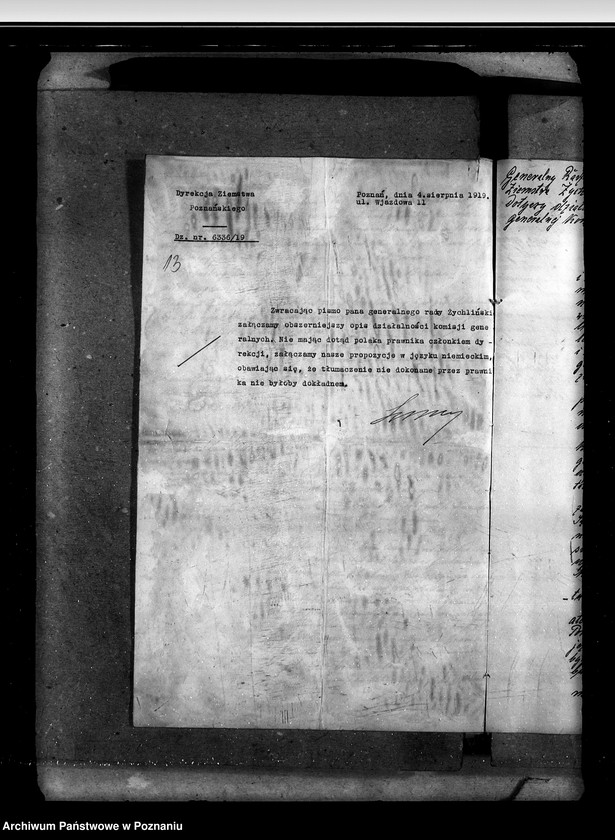 Dyrekcja Ziemstwa
Poznańskiego
Dz. nr. 6336/19
Poznań, dnia 4.sierpnia 1919.
ul. Wjazdowa 11
13
Zwracając pismo pana generalnego rady Żychlińskie
załączamy obszerniejszy opis działalności komisji gene
ralnych. Nie mając dotąd polaka prawnika członkiem dy -
rekcji, załączamy nasze propozycje w języku niemieckim,
obawiając się, że tłumaczenie nie dokonane przez prawni
ka nie byłoby dokładnem.
Generalny
Ziemstw
generalny
Archiwum Państwowe w Poznaniu